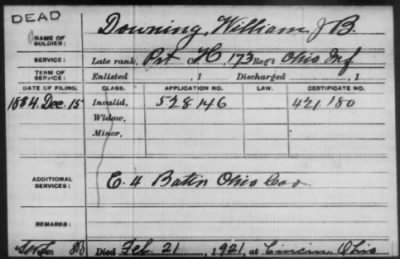 DEAD
NAME OF SOLDIER: Downing, William J B.
SERVICE: Late rank, Pvt Co H 173 Reg't Ohio Inf
TERM OF SERVICE: Enlisted , 1 Discharged , 1
DATE OF FILING. CLASS. APPLICATION NO. LAW. CERTIFICATE NO.
1884. Dec. 15 Invalid, 528146 421180
Widow,
Minor,
ADDITIONAL SERVICES: C. 4 Batln Ohio Cav
REMARKS:
Died Feb. 21, 1921, at Cincin. Ohio